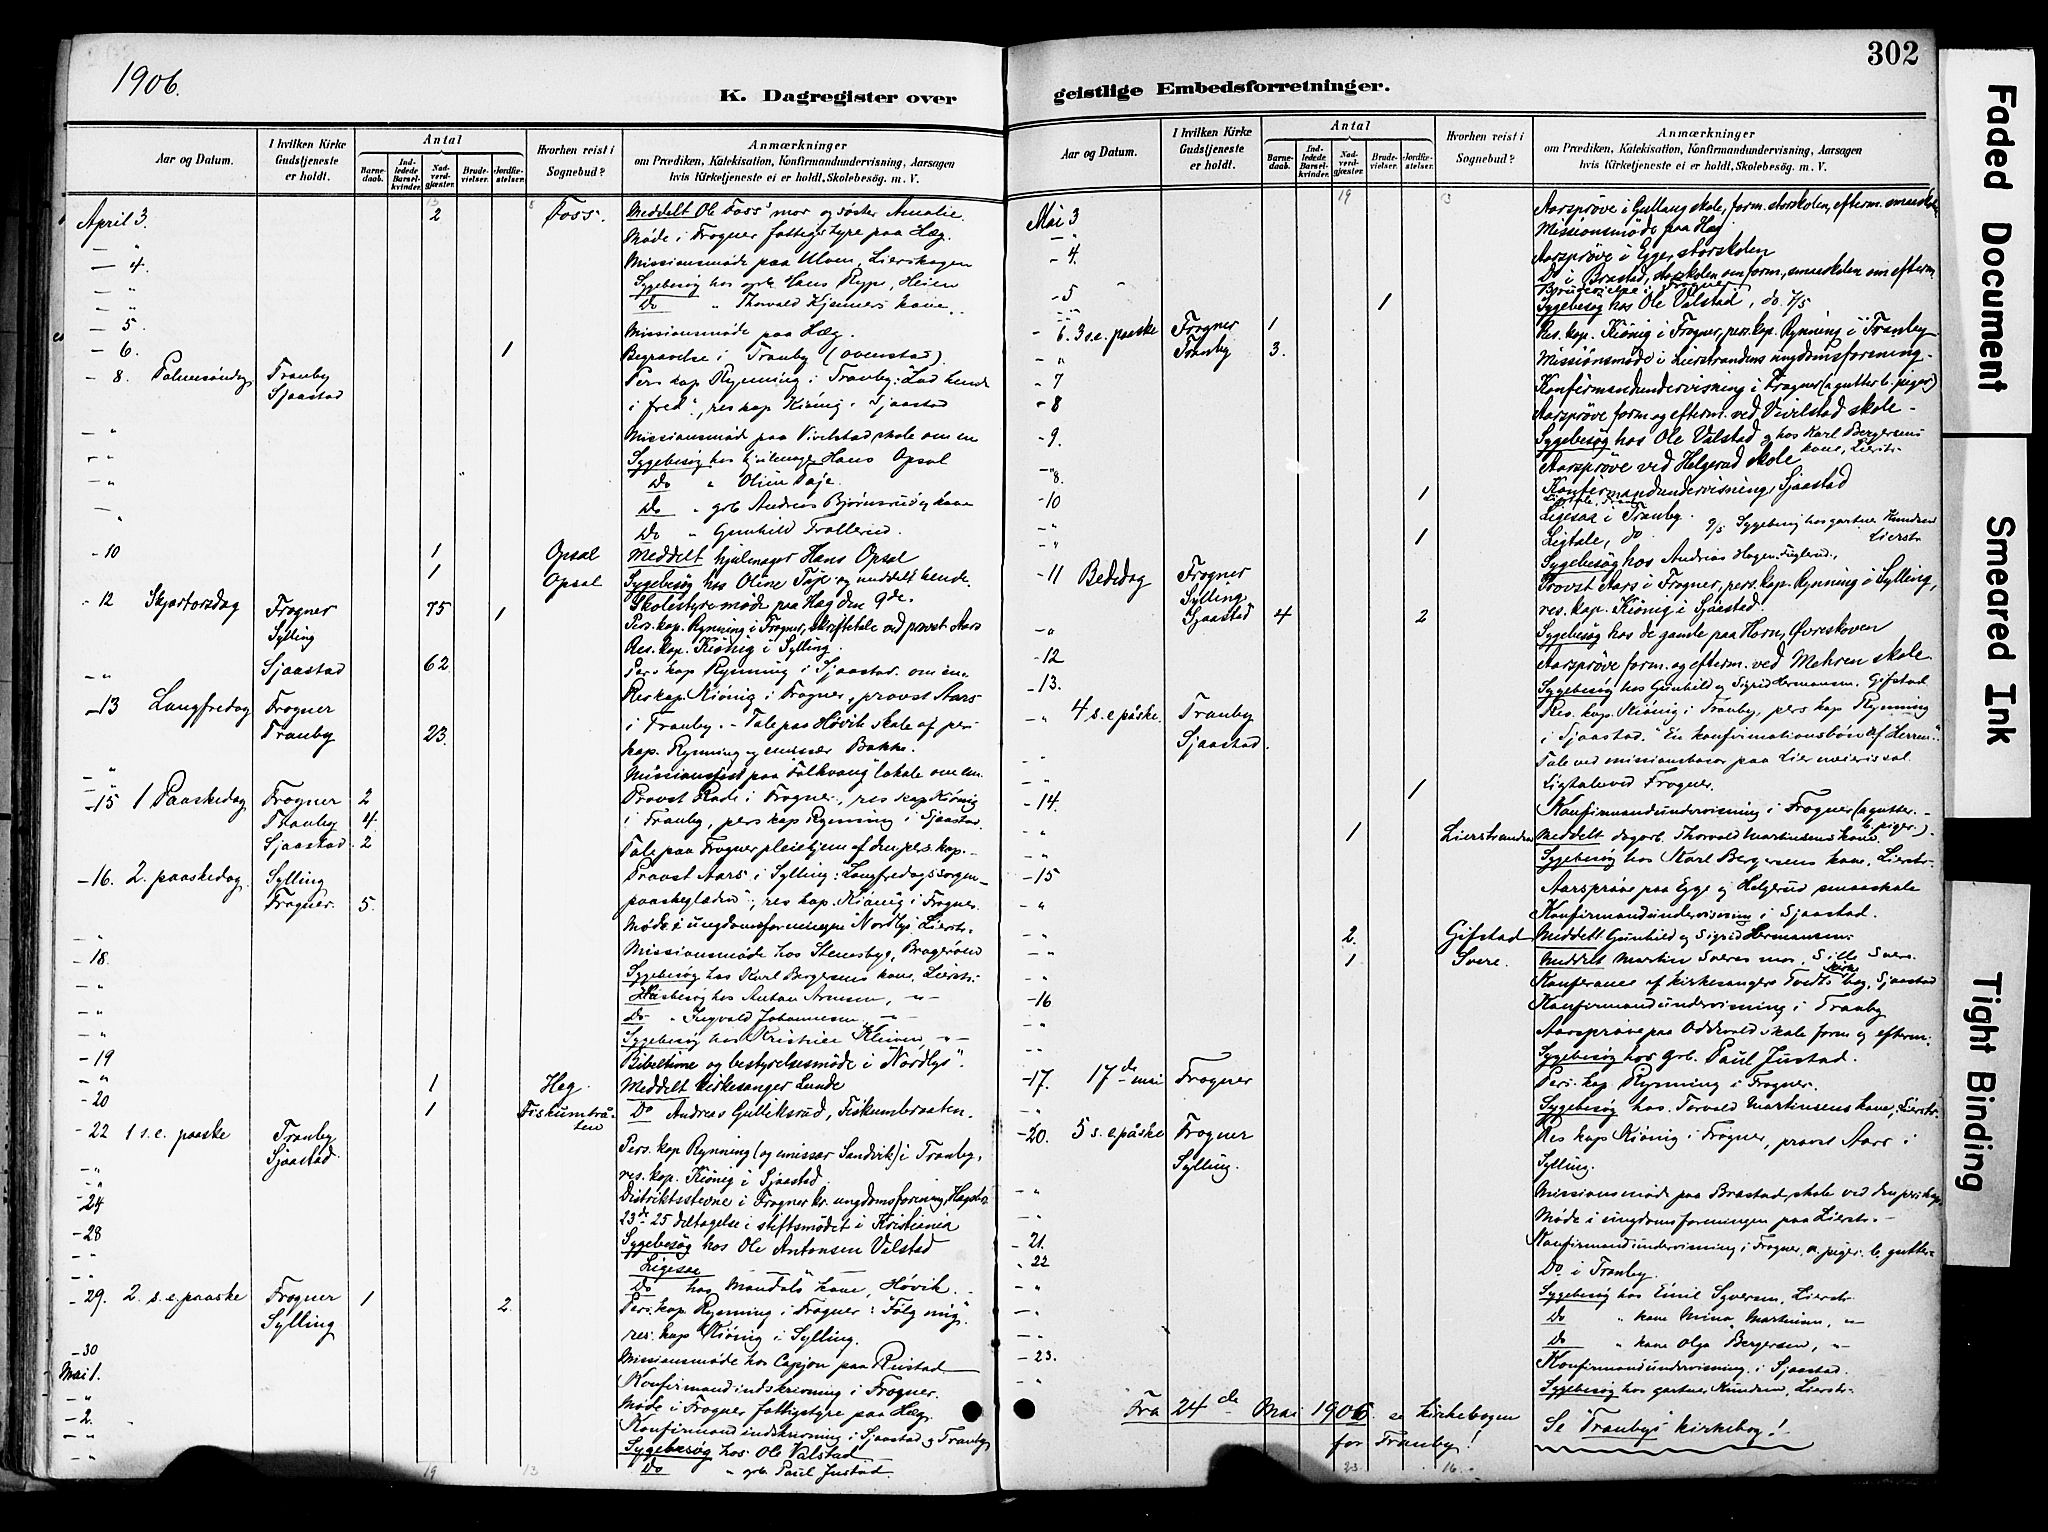 1906.
K. Dagregister over
Aar og Datum.
I hvilken Kirke Gudstjeneste er holdt.
Antal
Barnedaab.
Indledede Barselkvinder.
Nadverdgjæster.
Brudevielser.
Jordfæstelser.
Hvorhen reist i Sognebud?
Anmærkninger
om Prædiken, Katekisation, Konfirmandundervisning, Aarsagen
hvis Kirketjeneste ei er holdt, Skolebesøg. m. V.
April 3. 2 Foss. Meddelt Ole Foss' mor og søster Amalie.
— " Møde i Frogner fattigstyre paa Hæg.
— 4. Missionsmøde paa Ulven, Lierskogen
— " Sygebesøg hos grb. Hans Rype, Heien
— " Do " Thorvald Kjenners kone
— 5. Missionsmøde paa Hæg.
— 6. 1 Begravelse i Tranby (Ovenstad).
— 8. Palmesøndag Tranby Pers. kap. Rynning i Tranby: "Lad hende
Sjaastad i fred", res. kap. Kiönig i Sjaastad
— " Missionsmøde paa Vivelstad skole om em
— " Sygebesøg hos hjulmager Hans Opsal
— " Do " Oline Paje.
" Do " grb. Andreas Bjørnsrud's kone
" Do " Gunhild Trollerud.
— 10 1 Opsal Meddelt hjulmager Hans Opsal
1 Opsal Sygebesøg hos Oline Paje og meddelt hende.
Skolestyremøde paa Hæg den 9de.
— 12 Skjærtorsdag Frogner 75 1 Pers. kap. Rynning i Frogner, skriftetale ved provst Aars
Sylling Res. kap. Kiönig i Sylling.
— " Sjaastad 62 Pers. kap. Rynning i Sjaastad om em.
— 13 Langfredag Frogner Res. kap. Kiönig i Frogner, provst Aars
Tranby 23. i Tranby. – Tale paa Høvik skole af pers.
kap. Rynning og emissær Bakke.
— " Missionsfest paa "Folkvang" lokale om em.
— 15 1 Paaskedag Frogner 2 Provst Rode i Frogner, res. kap. Kiönig
Tranby 4. i Tranby, pers. kap. Rynning i Sjaastad.
Sjaastad 2 Tale paa Frogner pleiehjem af den pers. kap.
— 16. 2. paaskedag Sylling Provst Aars i Sylling: Langfredagssorgen –
Frogner. 5. paaskeglæden", res. kap. Kiönig i Frogner.
— " Møde i ungdomsforeningen "Nordlys", Lierstr.
— 18. Missionsmøde hos Stensbye, Bragerøen
— " Sygebesøg hos Karl Bergersens kone, Lierstr.
— " Husbesøg hos Anton Arnesen, — " —
— " Do " Ingvald Johannesen — " —
— " Sygebesøg hos Kristine Kleiven, — " —
— 19 Bibeltime og bestyrelsesmøde i "Nordlys".
— " 1 Heg. Meddelt kirkesanger Lunde
— 20 1 Fiskumbråten Do Andreas Gulliksrud, Fiskumbraaten.
— 22 1 s.e. paaske Tranby Pers. kap. Rynning (og emissær Sandvik) i Tranby,
Sjaastad. res. kap. Kiönig i Sjaastad.
— 24 Distriktsstevne i Frogner kr. ungdomsforening,
23de–25 deltagelse i stiftsmødet i Kristiania
— 28 Sygebesøg hos Ole Antonsen Valstad
— " Ligesaa
— " Do hos Mandals kone, Høvik.
— 29. 2. s.e. paaske Frogner 1 2. Pers. kap. Rynning i Frogner: "Følg mig",
Sylling res. kap. Kiönig i Sylling.
— 30 Missionsmøde hos Capjon paa Rustad
Mai 1. Konfirmandindskrivning i Frogner.
— " Møde i Frogner fattigstyre paa Hæg.
— 2. Konfirmandindskrivning i Sjaastad og Tranby
— " Sygebesøg hos Ole Valstad
— " Do " grb. Paul Justad.
19 13
302
geistlige Embedsforretninger.
Aar og Datum.
I hvilken Kirke Gudstjeneste er holdt.
Antal
Barnedaab.
Indledede Barselkvinder.
Nadverdgjæster.
Brudevielser.
Jordfæstelser.
Hvorhen reist i Sognebud?
Anmærkninger
om Prædiken, Katekisation, Konfirmandundervisning, Aarsagen
hvis Kirketjeneste ei er holdt, Skolebesøg. m. V.
19 13
Mai 3 Aarsprøve i Gullaug skole, form. storskolen, efterm. smaaskolen
— " Missionsmøde paa Hæg
— 4. Aarsprøve i Egge, storskolen
Do i Brastad, storskolen om form., smaaskolen om efterm.
— 5 1 Brudevielse i Frogner
Sygebesøg hos Ole Valstad, do. 7/5
— 6. 3 s.e. paaske Frogner 1 Res. kap. Kiönig i Frogner, pers. kap. Rynning i Tranby
— " Tranby 3. Missionsmøde i Lierstrandens ungdomsforening –
— 7 Konfirmandundervisning i Frogner (a gutter b. piger)
— 8 Aarsprøve form. og efterm. ved Vivelstad skole –
— 9. Sygebesøg hos Ole Valstad og hos Karl Bergersens kone, Lierstr.
— " Aarsprøve ved Helgerud skole
8. Konfirmandundervisning, Sjaastad
— 10 1 Ligesaa i Tranby. 9/5 Sygebesøg hos gartner Knudsen Lierstr.
— " 1 Ligtale, do
— " Sygebesøg hos Andreas Hagen, Fuglerud.
— 11 Bededag Frogner Provst Aars i Frogner, pers. kap. Rynning i Sylling,
Sylling
Sjaastad 4 2 res. kap. Kiönig i Sjaastad.
— " Sygebesøg hos de gamle paa Horn, Øvreskoven
— 12 Aarsprøve form. og efterm. ved Mehren skole.
— 13. Sygebesøg hos Gunhild og Sigrid Hermansen, Gifstad
— " 4 s.e. påske. Tranby Res. kap. Kiönig i Tranby, pers. kap. Rynning
Sjaastad. i Sjaastad. "En konfirmationsbøn af Herren".
— " Tale ved missionsbasar paa Lier meieris sal.
— " 1 Ligtale ved Frogner.
— 14. Konfirmandundervisning i Frogner (a gutter – b. piger.)
— " 1 Lierstranden Meddelt dagarb. Thorvald Martinsens kone
— " Sygebesøg hos Karl Bergersens kone, Lierstr.
— 15 Aarsprøve paa Egge og Helgerud smaaskole
— " Konfirmandundervisning i Sjaastad.
— " 2. Gifstad Meddelt Gunhild og Sigrid Hermansen.
— " 1 Svere. Meddelt Martin Sveres mor, Sille Svere.
— " Konferanse af kirkesanger Tvedts kirkebog, Sjaastad
— 16 Konfirmandundervisning i Tranby
— " Aarsprøve paa Oddevald skole form. og efterm.
Sygebesøg hos grb. Paul Justad.
— 17. 17de mai Frogner Pers. kap. Rynning i Frogner.
— " Sygebesøg hos Torvald Martinsens kone, Lierstr.
— 20. 5 s.e. påske Frogner Res. kap. Kiönig i Frogner, provst Aars i
Sylling. Sylling.
— " Missionsmøde paa Brastad skole ved den pers. kap.
— " Møde i ungdomsforeningen paa Lierstr. –
— 21. Konfirmandundervisning i Frogner, a. piger. b. gutter –
— 22 Do i Tranby.
— " Sygebesøg hos Emil Syversen, Lierstr.
— " Do " kone Mina Martinsen, — " —
— " Do " kone Olga Bergersen, — " —
— 23. Konfirmandundervisning i Sjaastad.
— " Sygebesøg hos gartner Knudsen, Lierstr.
Fra 24de Mai 1906 se kirkebogen for Tranby! Se Tranbys kirkebog!
23 16.
Faded Document
Smeared Ink
Tight Binding